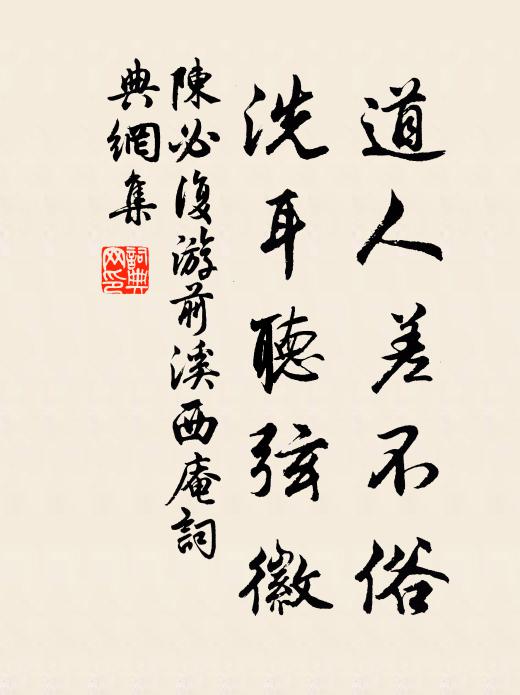 道人差不俗
洗耳聽弦徽
陳必復游前溪西庵詞
典網集
詞典
网印